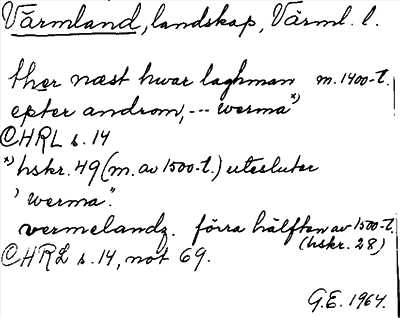 Värmland, landskap, Värml. l.
ther næst hwar laghman m. 1400-t.
epter androm, --- werma *)
CHRL s. 14
*) hskr. 49 (m. av 1500-t.) utesluter
"werma".
vermelandz. förra hälften av 1500-t.
(hskr. 28)
CHRL s. 14, not 69.
G.E. 1964.